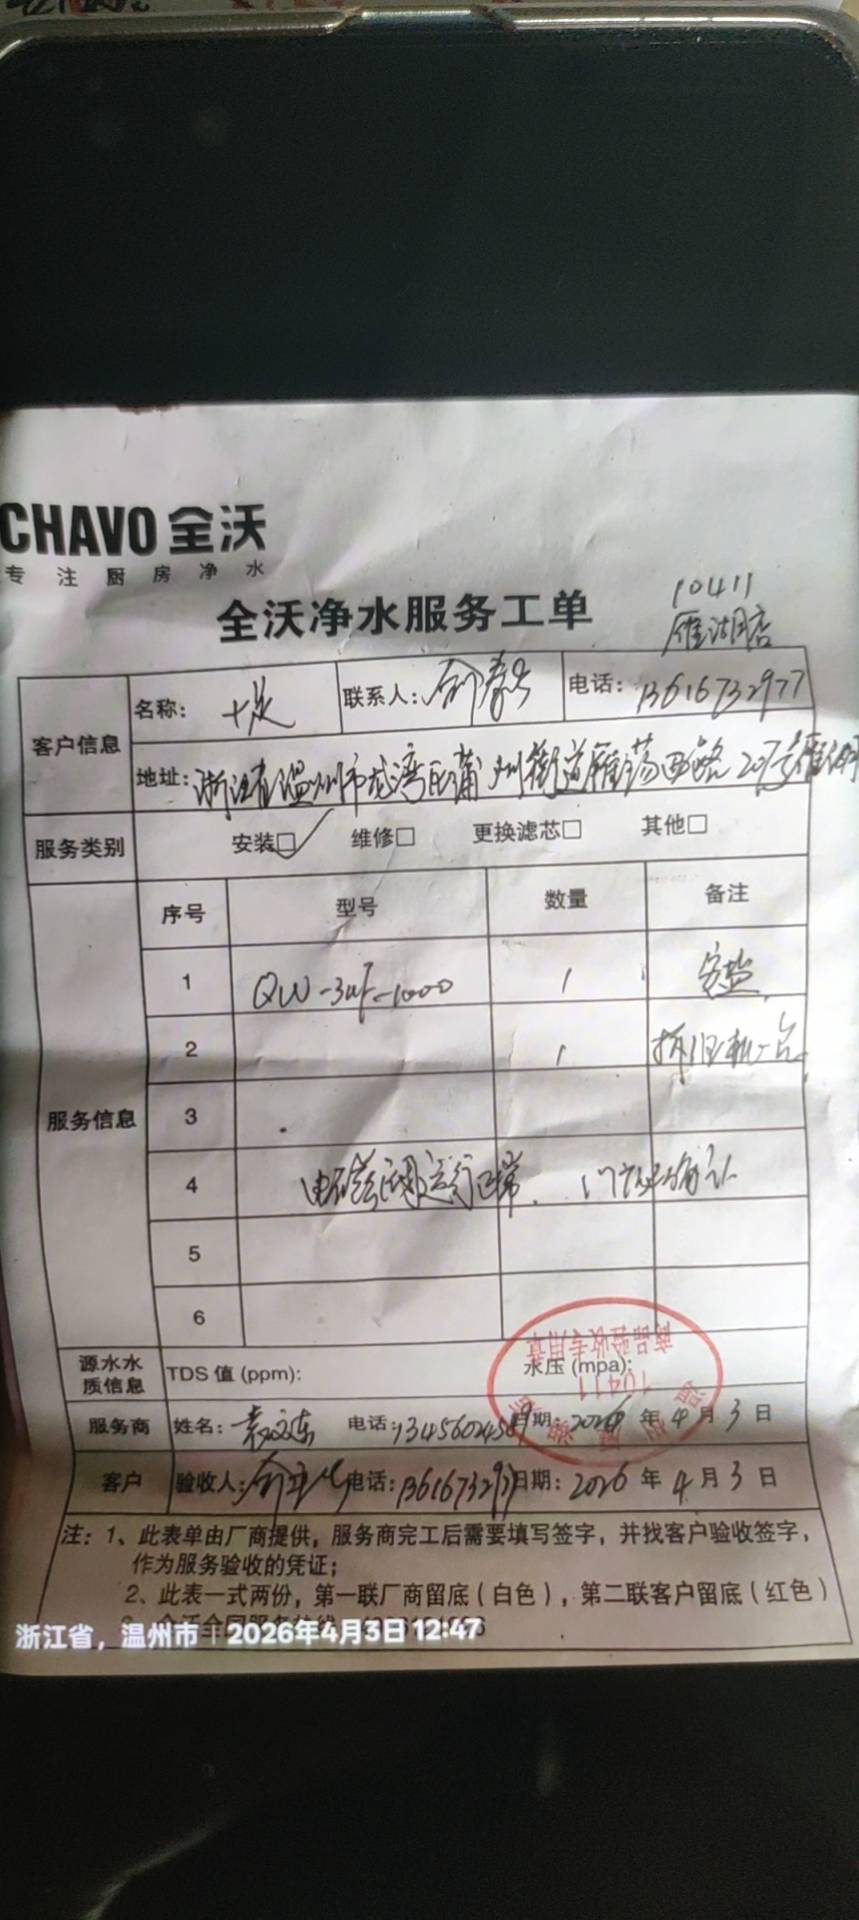 CHAVO 全沃
专注厨房净水
全沃净水服务工单
10411
雁湖店
客户信息
名称: 十足
联系人: 俞
电话: 13616732977
地址: 浙江省温州市龙湾区蒲州街道雁荡西路207号雁湖
服务类别
安装□ 维修□ 更换滤芯□ 其他□
服务信息
序号 型号 数量 备注
1 QW-3UF-1000 1 安装
2 1 拆旧机一台
3
4 电磁阀运行正常. 门店已确认
5
6
源水水质信息
TDS 值 (ppm): 水压 (mpa):
商品验收专用章
10411
服务商 姓名: 袁文东 电话: 日期: 2026 年 4 月 3 日
客户 验收人: 俞 电话: 日期: 2026 年 4 月 3 日
注: 1、此表单由厂商提供，服务商完工后需要填写签字，并找客户验收签字，
作为服务验收的凭证；
2、此表一式两份，第一联厂商留底（白色），第二联客户留底（红色）
浙江省，温州市 | 2026年4月3日 12:47